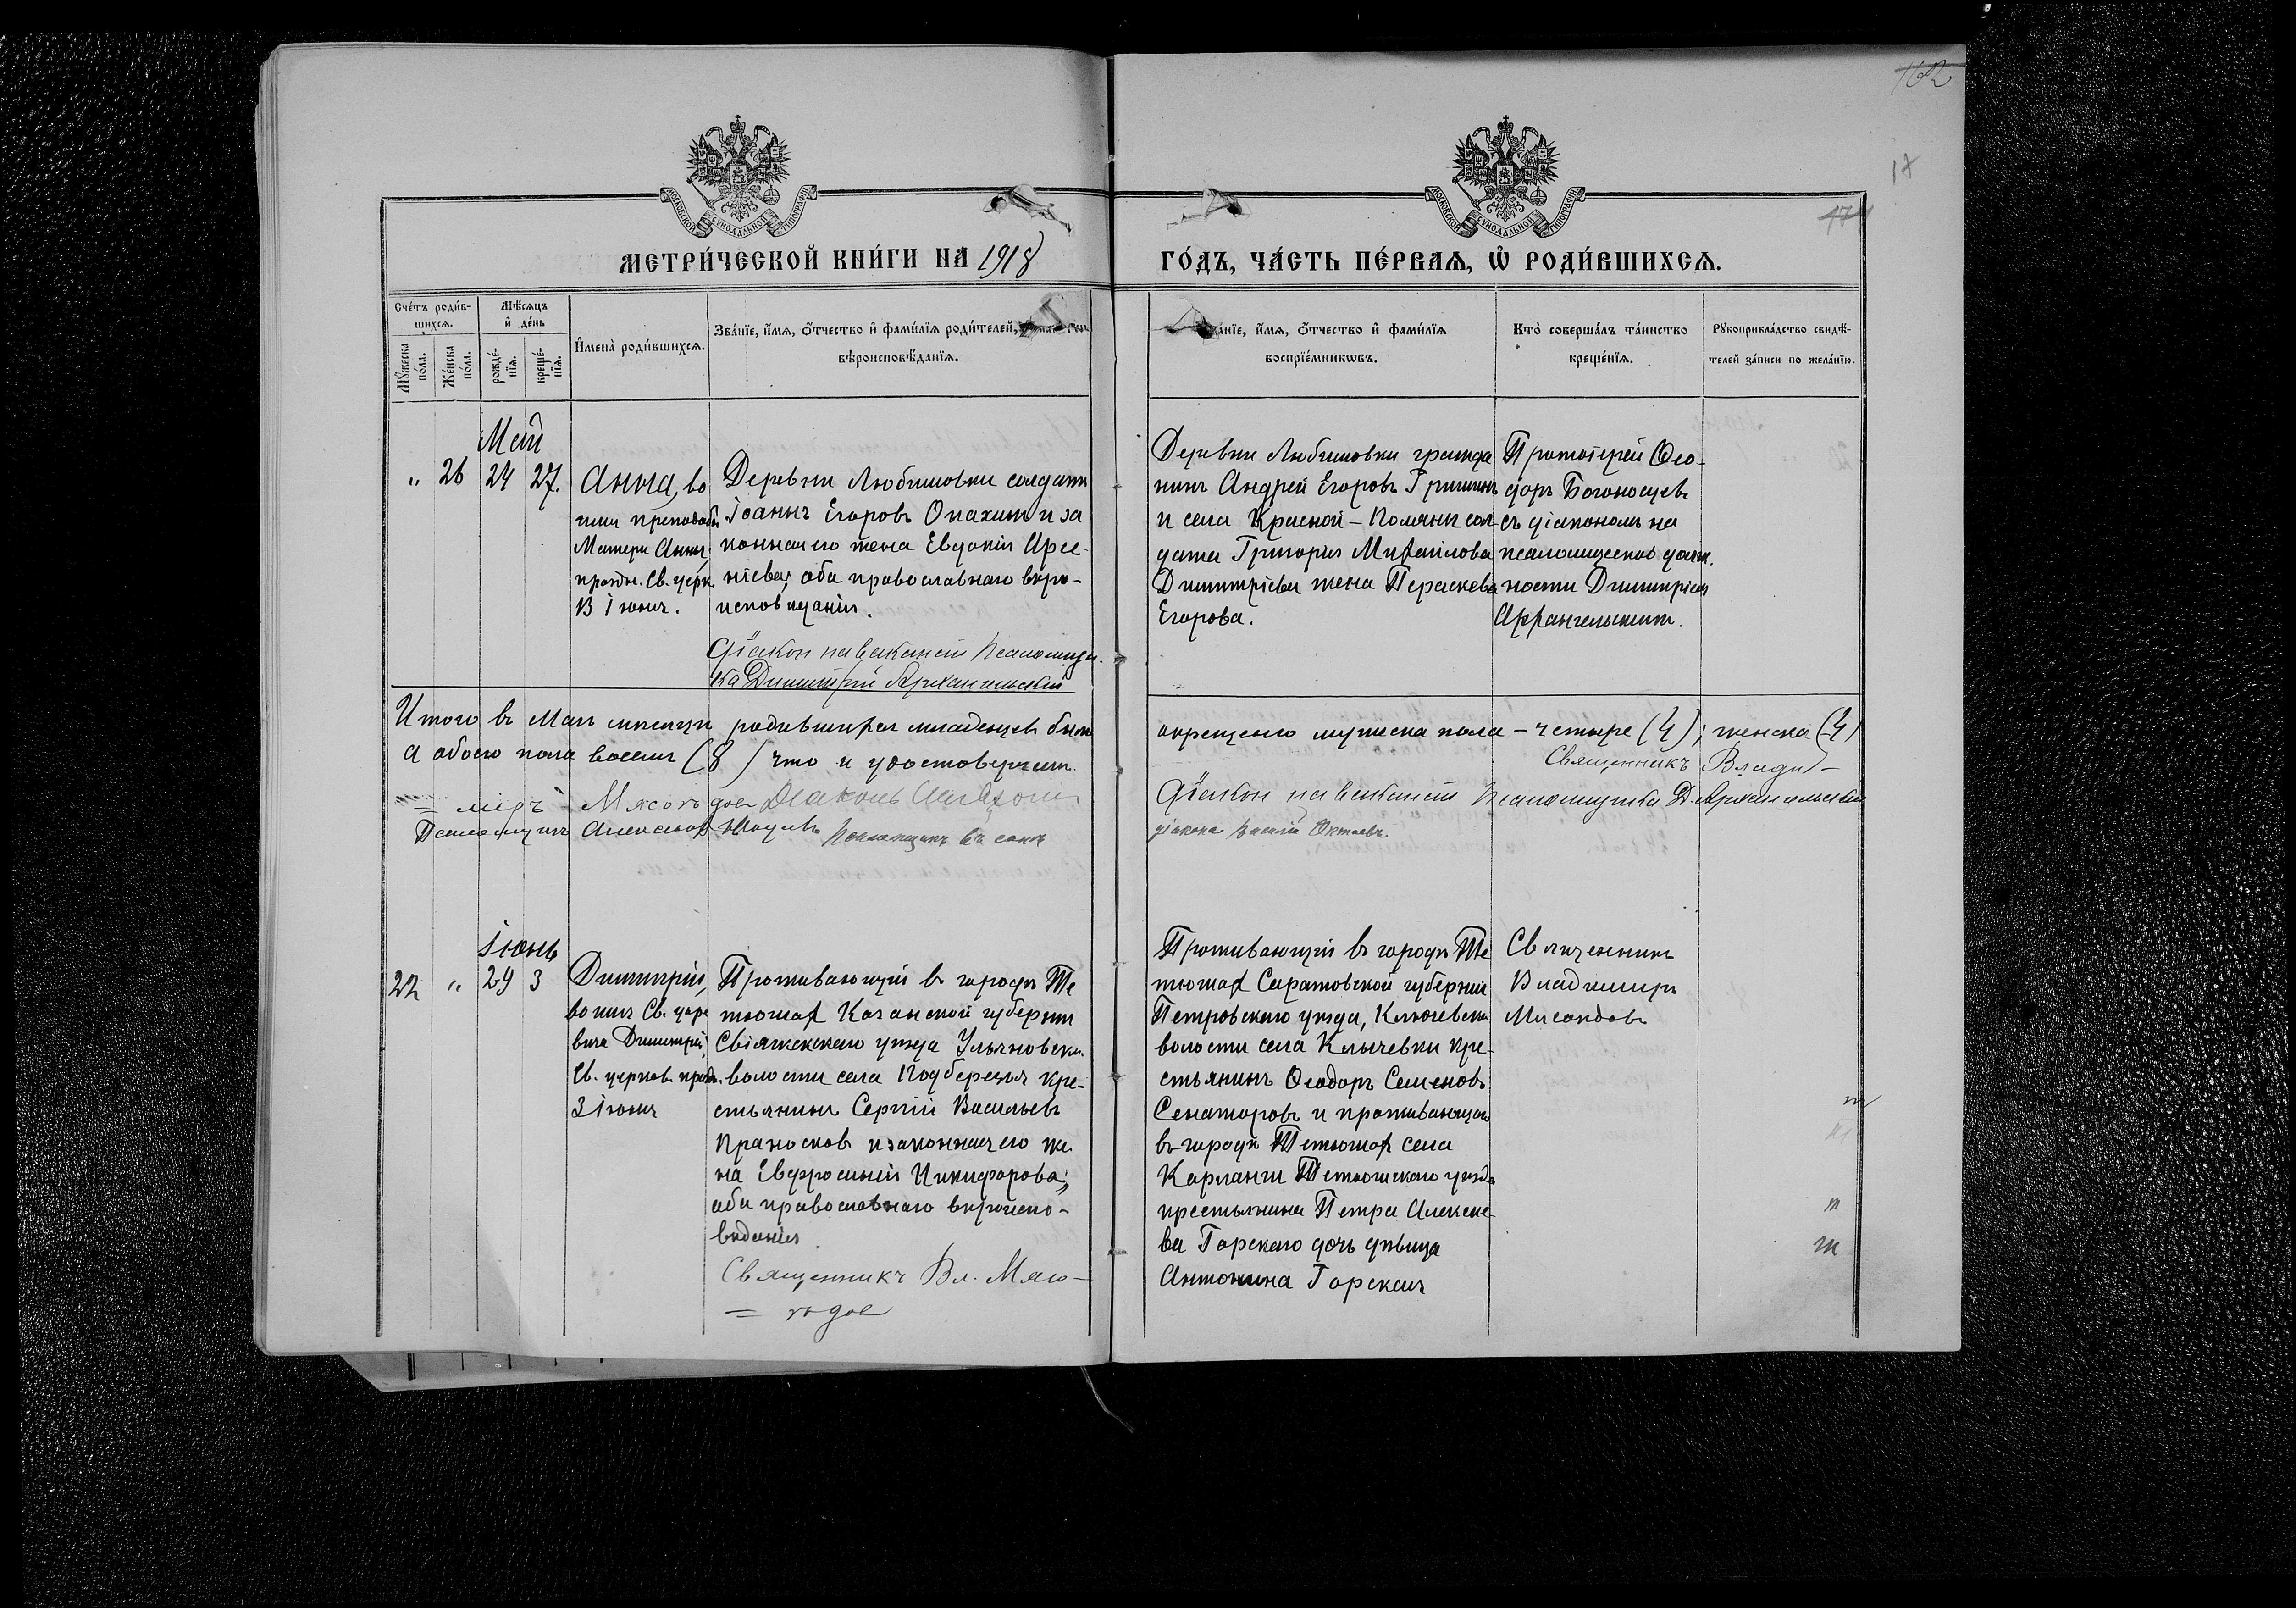 162
18
474
МОСКОВСКОЙ СѴНОДАЛЬНОЙ ТИПОГРАФІИ
МОСКОВСКОЙ СѴНОДАЛЬНОЙ ТИПОГРАФІИ
МЕТРИ́ЧЕСКОЙ КНИ́ГИ НА 1918
ГО́ДЪ, ЧА́СТЬ ПЕ́РВАЯ, Ѡ҆ РОДИ́ВШИХСЯ.
Сче́тъ роди́в-
шихся.
Мѣ́сяцъ
и҆ де́нь
Мꙋ́жеска по́ла.
Же́нска по́ла.
рожде́-
нїя.
креще́-
нїя.
И҆мена̀ роди́вшихся.
Зва́нїе, и҆́мя, ѻ҆́тчество и҆ фами́лїя роди́телей,
вѣроисповѣ́данїя.
и҆́мя, ѻ҆́тчество и҆ фами́лїя
воспрїе́мникѡвъ.
Кто̀ соверша́лъ та́инство
креще́нїя.
Рꙋкоприкла́дство свидѣ́-
телей за́писи по жела́нїю.
Май
" 26 24 27.
Анна, во
имя преподоб.
Матери Анны,
праздн. Св. церк.
13 Іюня.
Деревни Любимовки солдатъ
Іоаннъ Егоровъ Опахинъ и за
конная его жена Евдокія Арсе-
ніева; оба православнаго вѣро-
исповѣданія.
Діакон на вакансіи псаломщи-
ка Димитрій Архангельскій
Деревни Любимовки гражда
нинъ Андрей Егоровъ Гришинъ
и села Красной-Поляны сол-
дата Григорія Михаилова
Димитріева жена Параскева
Егорова.
Протоіерей Ѳео-
доръ Богоносцевъ
съ діакономъ на
псаломщеской долж.
ности Димитріемъ
Архангельскимъ.
Итого въ Маѣ мѣсяцѣ родившихся младенцевъ было
окрещено мужеска пола – четыре (4); женска (4)
а обоего пола восемь (8) что и удостовѣряемъ.
Священникъ Влади-
= міръ Мясоѣдов Діаконъ
Діакон на вакансіи псаломщика Д. Архангельскій
Псаломщикъ Александр Псаломщикъ въ санѣ
діакона Василій
Іюнь
22 " 29 3
Димитрій,
во имя Св. царе
вича Димитрія,
Св. церков. празд.
3 Іюня
Проживающій въ городѣ Те
тюшахъ Казанской губерніи
Свіяжскаго уѣзда Ульяновск.
волости села Подберезья кре-
стьянинъ Сергій Васильевъ
Праносковъ и законная его же
на Евфросинія Никифорова;
оба православнаго вѣроиспо-
вѣданія
Священникъ Вл. Мясо-
= ѣдов
Проживающій въ городѣ Те
тюшахъ Саратовской губерніи
Петровскаго уѣзда, Ключевско
волости села Ключевки кре-
стьянинъ Ѳеодоръ Семеновъ
Сенаторовъ и проживающаго
въ городѣ Тетюшахъ села
Карланги Тетюшскаго уѣзда
крестьянина Петра Алексѣе-
ва Горскаго дочь дѣвица
Антонина Горская
Священникъ
Владимиръ
Мясоѣдовъ